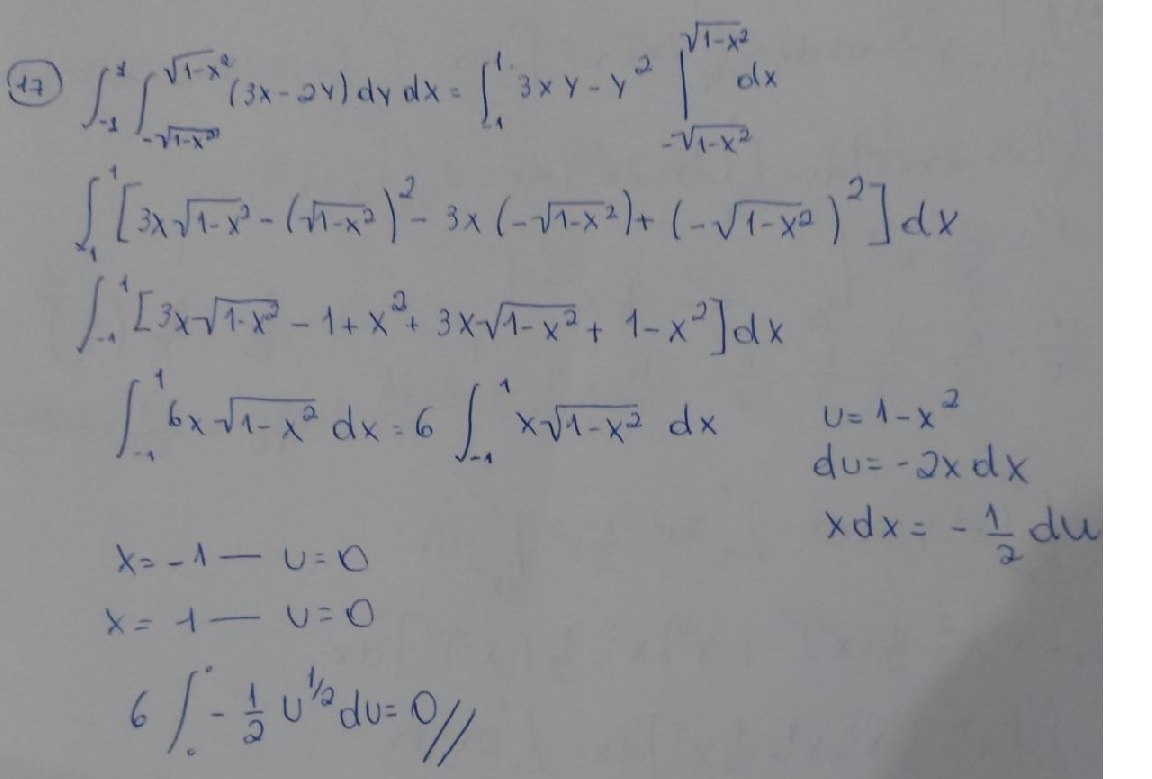 17 ∫_{-1}^{1} ∫_{-√(1-x²)}^{√(1-x²)} (3x - 2y) dy dx = ∫_{-1}^{1} 3xy - y² |_{-√(1-x²)}^{√(1-x²)} dx
∫_{-1}^{1} [3x√(1-x²) - (√(1-x²))² - 3x(-√(1-x²)) + (-√(1-x²))²] dx
∫_{-1}^{1} [3x√(1-x²) - 1 + x² + 3x√(1-x²) + 1 - x²] dx
∫_{-1}^{1} 6x√(1-x²) dx = 6 ∫_{-1}^{1} x√(1-x²) dx
u = 1 - x²
du = -2x dx
x dx = -1/2 du
x = -1 — u = 0
x = 1 — u = 0
6 ∫_{0}^{0} -1/2 u^{1/2} du = 0//